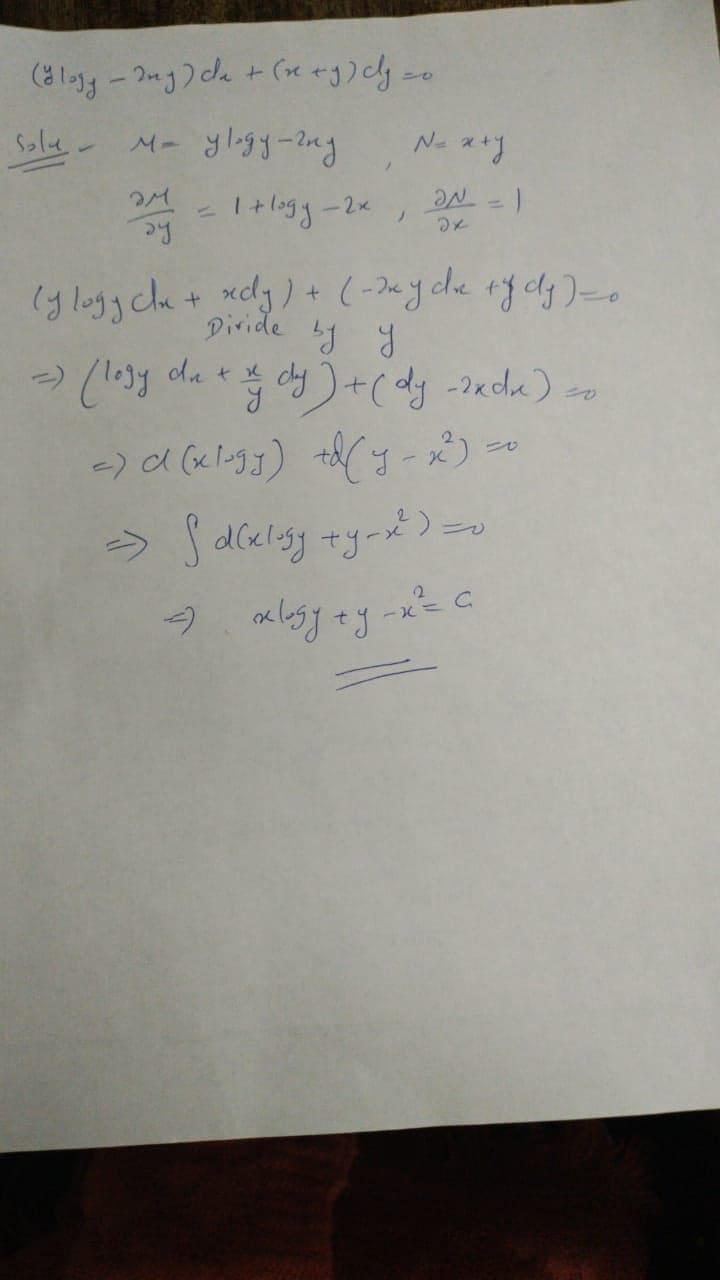 (y logy - 2xy) dx + (x + y) dy = 0
Soln - M = y logy - 2xy , N = x + y
∂M/∂y = 1 + logy - 2x , ∂N/∂x = 1
(y logy dx + x dy) + (-2xy dx + y dy) = 0
Divide by y
=> (logy dx + x/y dy) + (dy - 2x dx) = 0
=> d(x logy) + d(y - x²) = 0
=> ∫ d(x logy + y - x²) = 0
=> x logy + y - x² = C